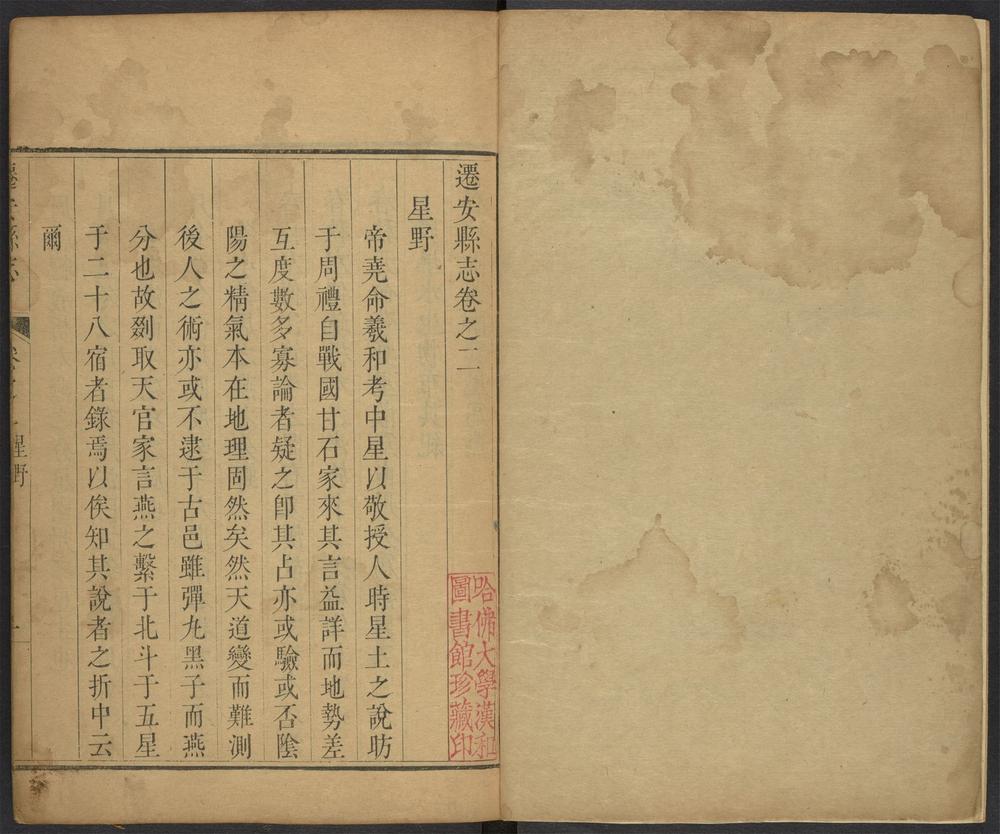 遷安縣志卷之二
星野
帝堯命羲和考中星以敬授人時星土之說昉
于周禮自戰國甘石家來其言益詳而地勢差
互度數多寡論者疑之卽其占亦或驗或否陰
陽之精氣本在地理固然矣然天道變而難測
後人之術亦或不逮于古邑雖彈丸黑子而燕
分也故劉取天官家言燕之繫于北斗于五星
于二十八宿者錄焉以俟知其說者之折中云
爾
哈佛大學漢和
圖書館珍藏印
星野